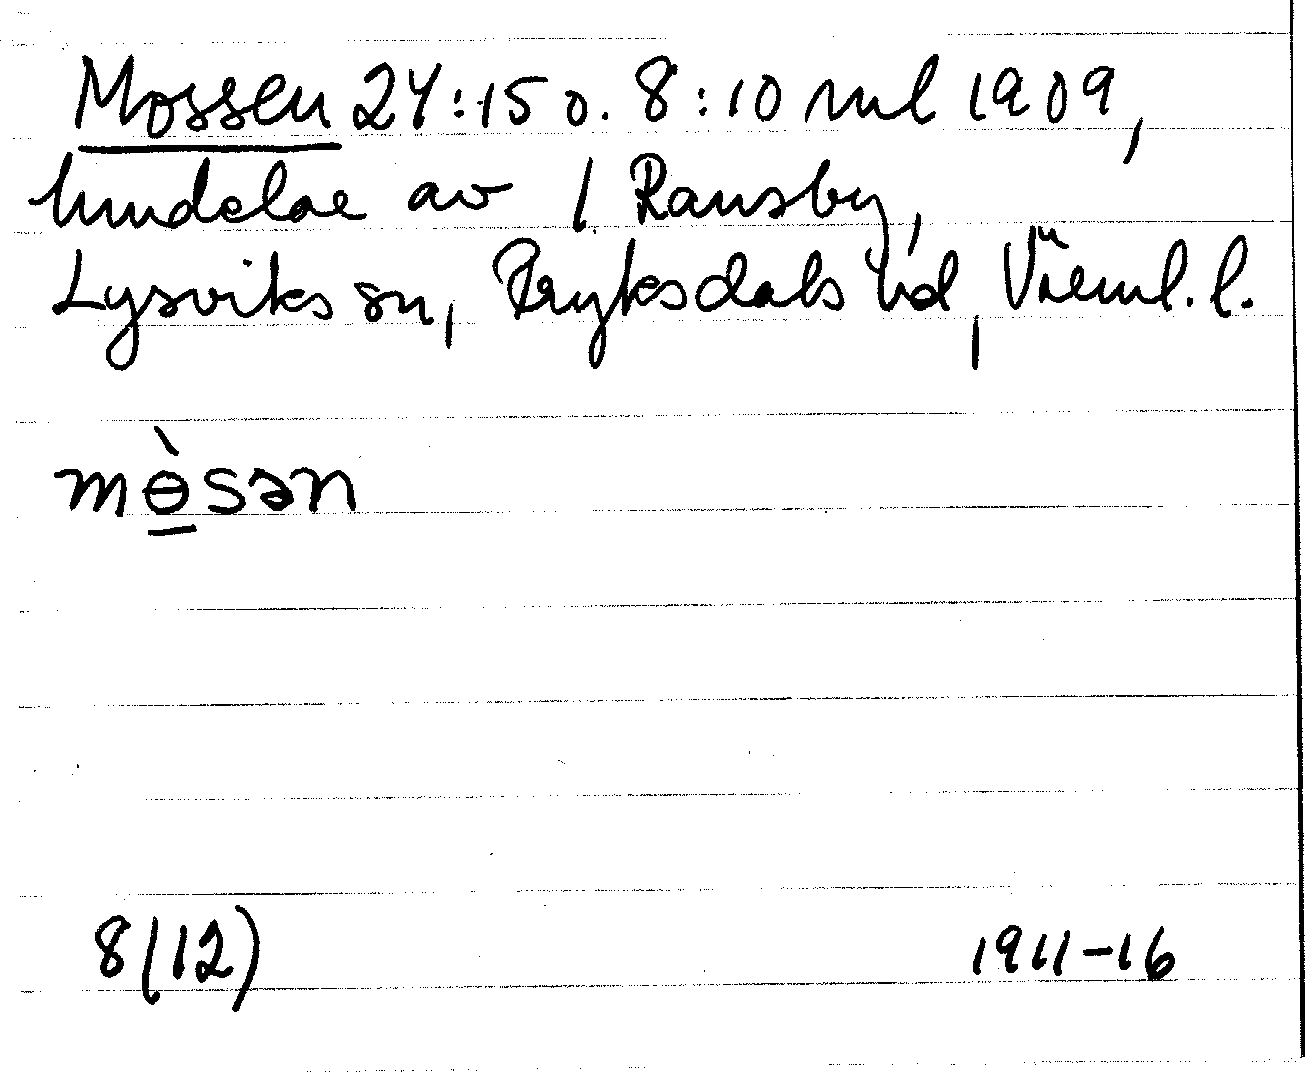 Mossen 24:15 o. 8:10 ml 1909,
hmdelar av 1 Ransby,
Lysviks sn, Fryksdals hd, Värml. l.
mɵ̱̀sən
8(12) 1911-16